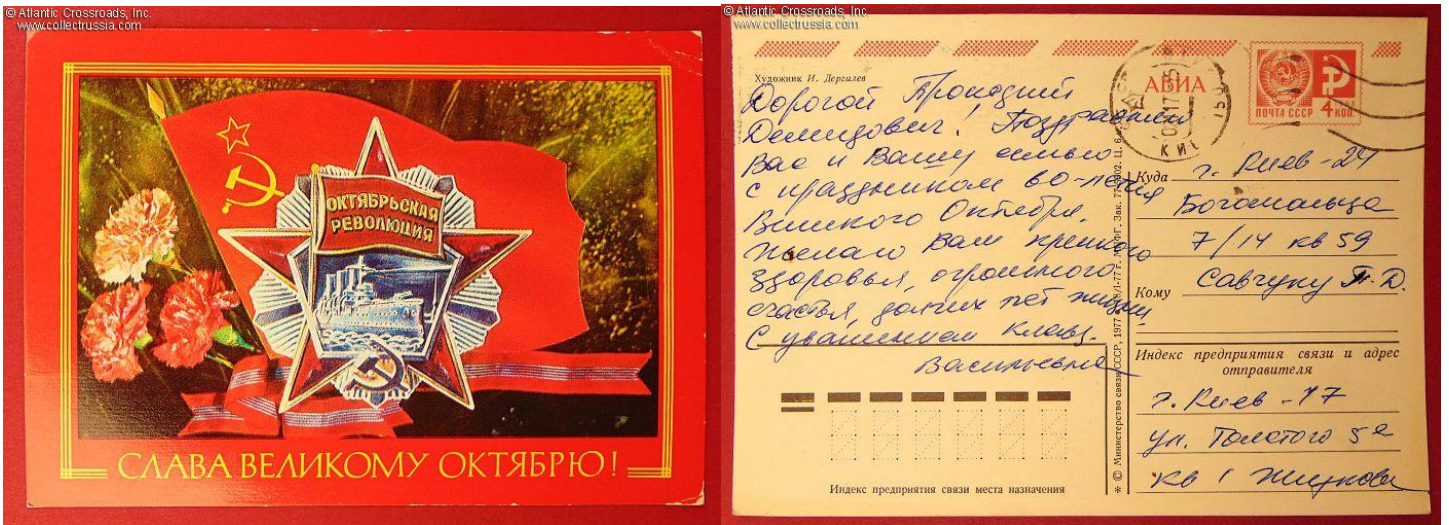 © Atlantic Crossroads, Inc.
www.collectrussia.com
ОКТЯБРЬСКАЯ
РЕВОЛЮЦИЯ
СЛАВА ВЕЛИКОМУ ОКТЯБРЮ!
© Atlantic Crossroads, Inc.
www.collectrussia.com
Художник И. Дергилев
АВИА
ПОЧТА СССР 4 КОП.
Дорогой
Демидович! Поздравляем
Вас и Вашу семью
с праздником 60-летия
Великого Октября.
Желаю Вам крепкого
здоровья, огромного
счастья, долгих лет жизни.
С уважением Клавд.
Васильевна
Куда г. Киев-24
Богомольца
7/14 кв 59
Кому Савчуку Т. Д.
Индекс предприятия связи и адрес
отправителя
г. Киев-17
ул. Толстого 5а
кв 1
Индекс предприятия связи места назначения
© Министерство связи СССР, 1977